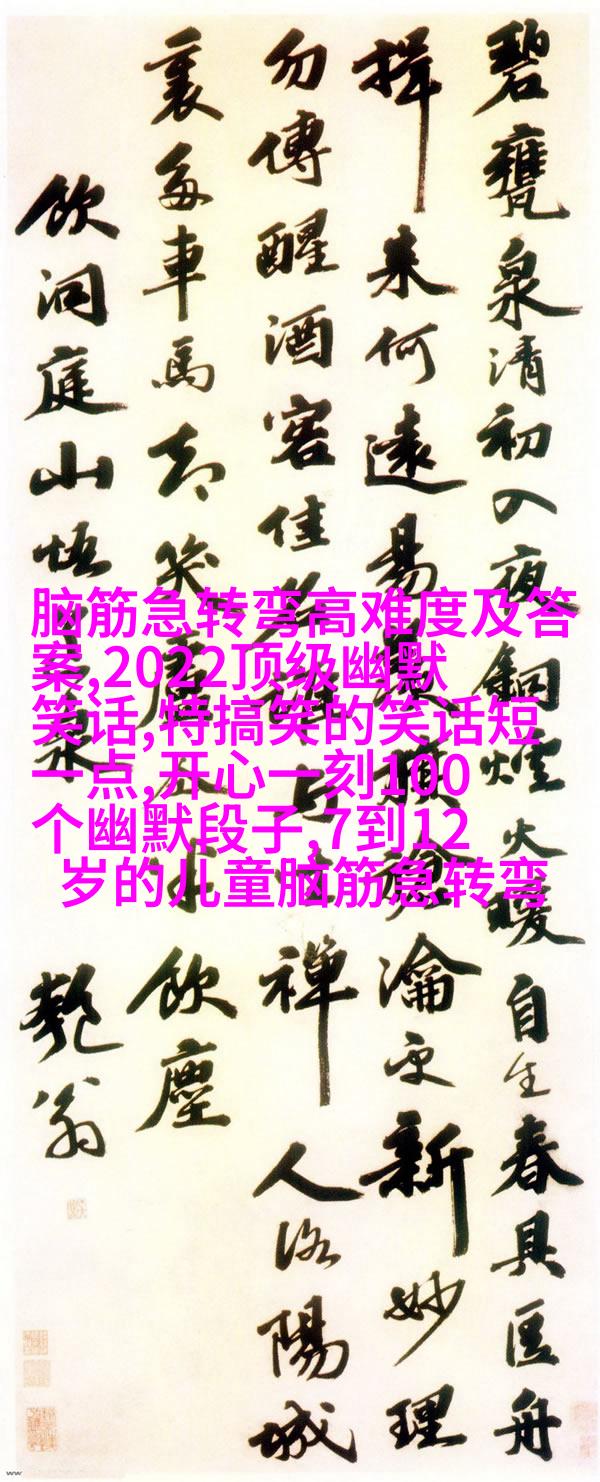 脑筋急转弯高难度及答
案,2022顶级幽默
笑话,特搞笑的笑话短
一点,开心一刻100
个幽默段子,7到12
岁的儿童脑筋急转弯
碧甕泉清初入夜銅火暖自生春具區舟
楫來何遠瀹更新妙理
勿傳醒酒客佳名誰與坐禪人洛陽城
裏多車馬却笑盧仝飲塵
飲洞庭山悟道泉
匏翁